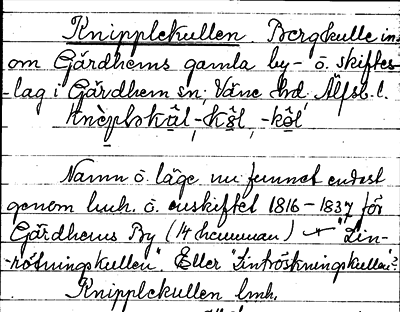 Knipplekullen. Bergkulle in-
om Gärdhems gamla by- o. skiftes-
-lag i Gärdhem sn; Väne hd. Älfsb. l.
Knèplskâl, -kôl, -kôl
Namn o. läge nu funnet endast
genom lmh. o. enskiftet 1816-1837 för
Gärdhems By (14 hemman) "Lin-
-rötningskullen". Eller "Lintröskningskullen"?
Knipplekullen lmh.